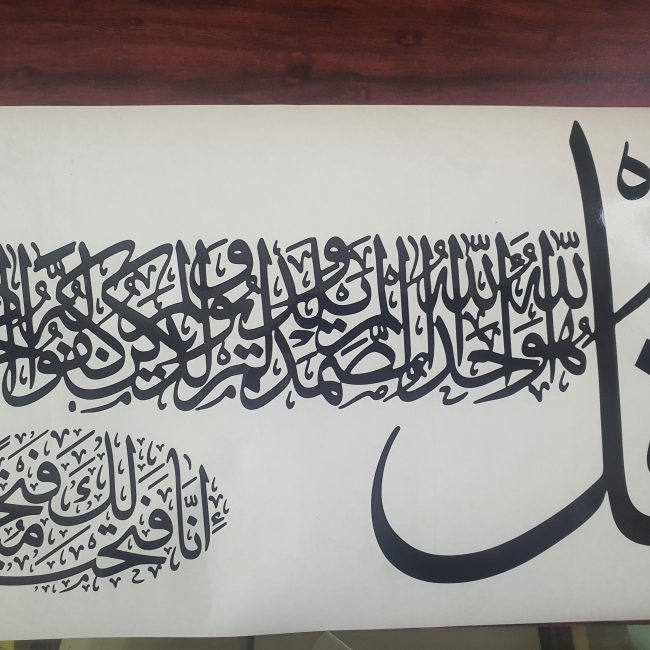 قل
هو الله أحد الله الصمد لم يلد ولم يولد ولم يكن
إنا فتحنا لك فتحا